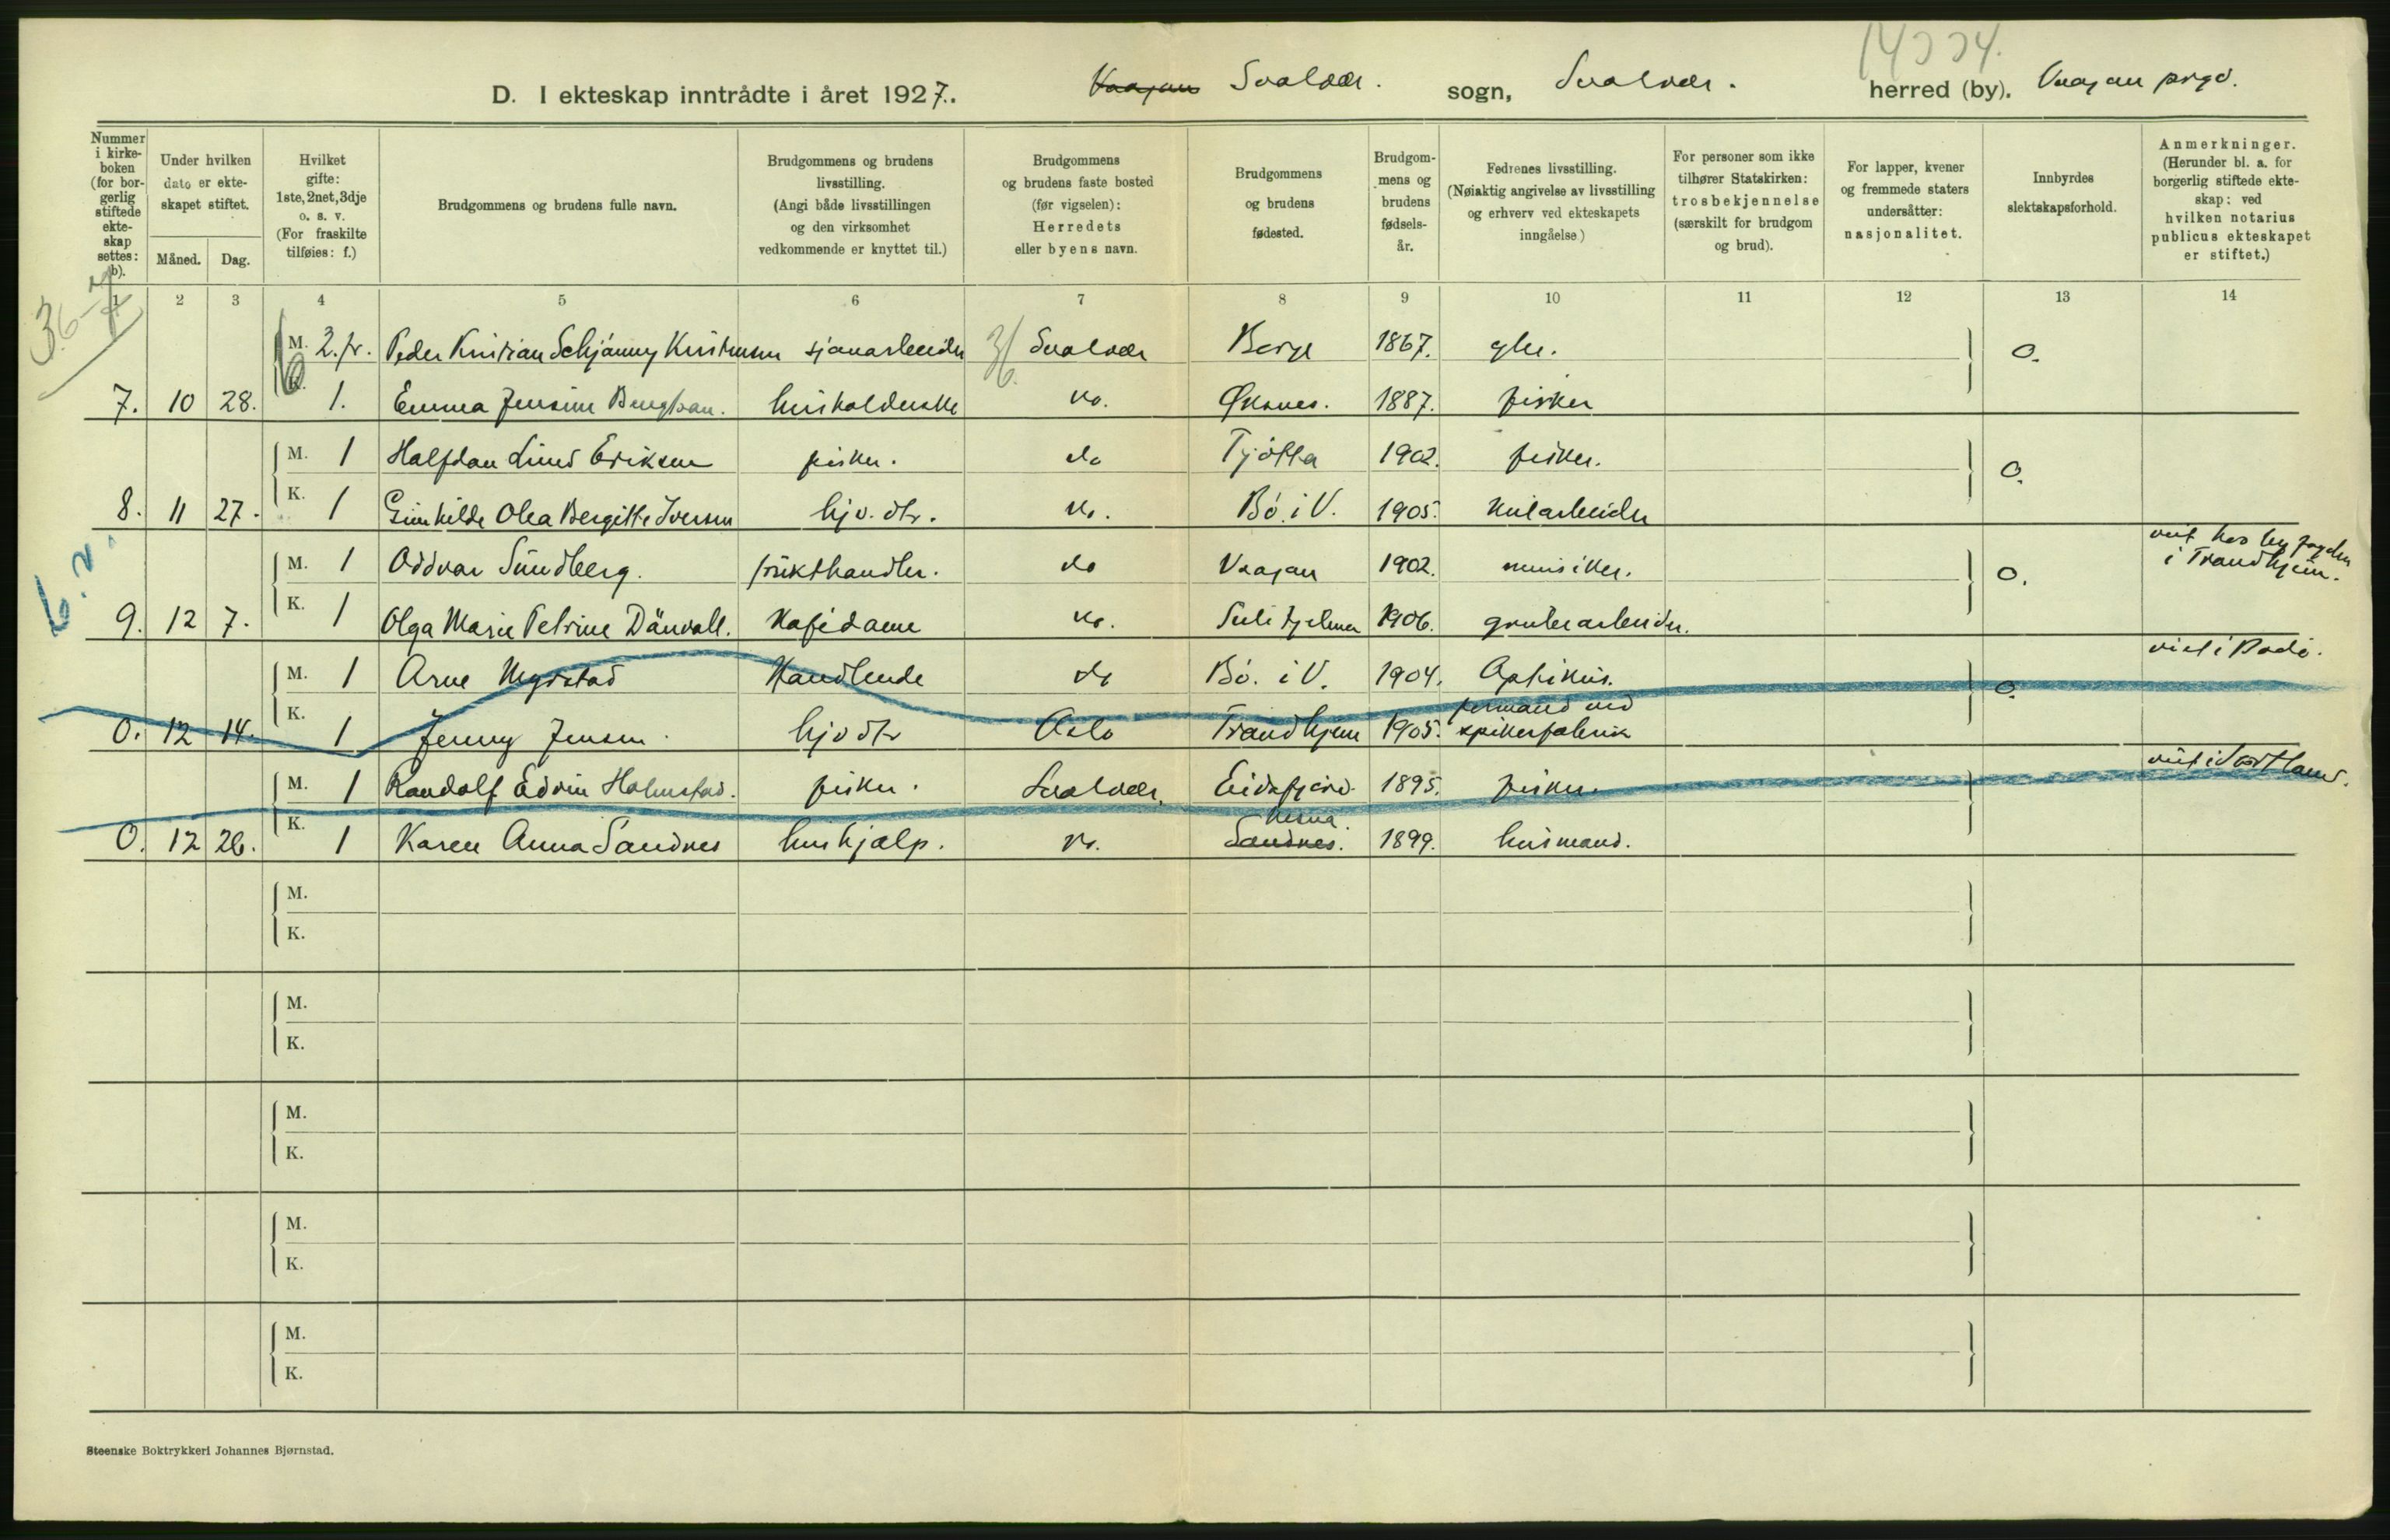 14334.
D. I ekteskap inntrådte i året 1927. Vaagan Svolvær. sogn, Svolvær. herred (by). Vaagan prgd.
Nummer i kirke-boken (for bor-gerlig stiftede ekte-skap settes: b).
Under hvilken dato er ekte-skapet stiftet.
Måned. Dag.
Hvilket gifte: 1ste, 2net, 3dje o. s. v. (For fraskilte tilføies: f.)
Brudgommens og brudens fulle navn.
Brudgommens og brudens livsstilling. (Angi både livsstillingen og den virksomhet vedkommende er knyttet til.)
Brudgommens og brudens faste bosted (før vigselen): Herredets eller byens navn.
Brudgommens og brudens fødested.
Brudgom-mens og brudens fødsels-år.
Fedrenes livsstilling. (Nøiaktig angivelse av livsstilling og erhverv ved ekteskapets inngåelse)
For personer som ikke tilhører Statskirken: trosbekjennelse (særskilt for brudgom og brud).
For lapper, kvener og fremmede staters undersåtter: nasjonalitet.
Innbyrdes slektskapsforhold.
Anmerkninger. (Herunder bl. a. for borgerlig stiftede ekte-skap: ved hvilken notarius publicus ekteskapet er stiftet.)
1 2 3 4 5 6 7 8 9 10 11 12 13 14
M. 2. fr. Peder Kristian Schjänny Kristensen sjauarbeider Svolvær Borge 1867. gbr. 0.
7. 10 28. K. 1. Emma Jensine husholderske do. Øksnes. 1887. fisker
M. 1 Halfdan Lund Eriksen fisker. do Tjötta 1902. fisker. 0.
8. 11 27. K. 1 Gunhilde Olea Bergitte Iversen hjv. dtr. do. Bö. i V. 1905. kularbeider
M. 1 Oddvar Sundberg. frukthandler. do Vaagan 1902. musiker. 0. vist hos byfogden i Trondhjem.
9. 12 7. K. 1 Olga Marie Petrine Kafédame do. Sulitjelma 1906. grubearbeider.
M. 1 Arne Myrstad Handlende do Bö. i V. 1904. Optikus. 0. viet i Bodö.
0. 12 14. K. 1 Jenny Jensen. hjv dtr Oslo Trondhjem 1905. formand ved spikerfabrik
M. 1 Randolf Edvin Holmstad. fisker. Svolvær. Eidsfjord. 1895. fisker. viet i Sortland.
0. 12 26. K. 1 Karen Anna Sandnes hushjælp. do. Sandnes. 1899. husmand.
M.
K.
M.
K.
M.
K.
M.
K.
M.
K.
Steenske Boktrykkeri Johannes Bjørnstad.